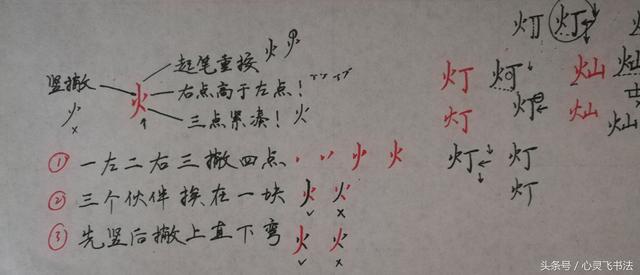 起笔重按 火
竖撇 火 右点高于左点！
三点紧凑！ 火
① 一左二右三撇四点 火 火
② 三个伙伴挨在一块 火 火
③ 先竖后撇上直下弯 火 火
灯 灯
灯 灯 灿 灿
灯 灯 灿 灿
灯 灯
灯
头条号／心灵飞书法